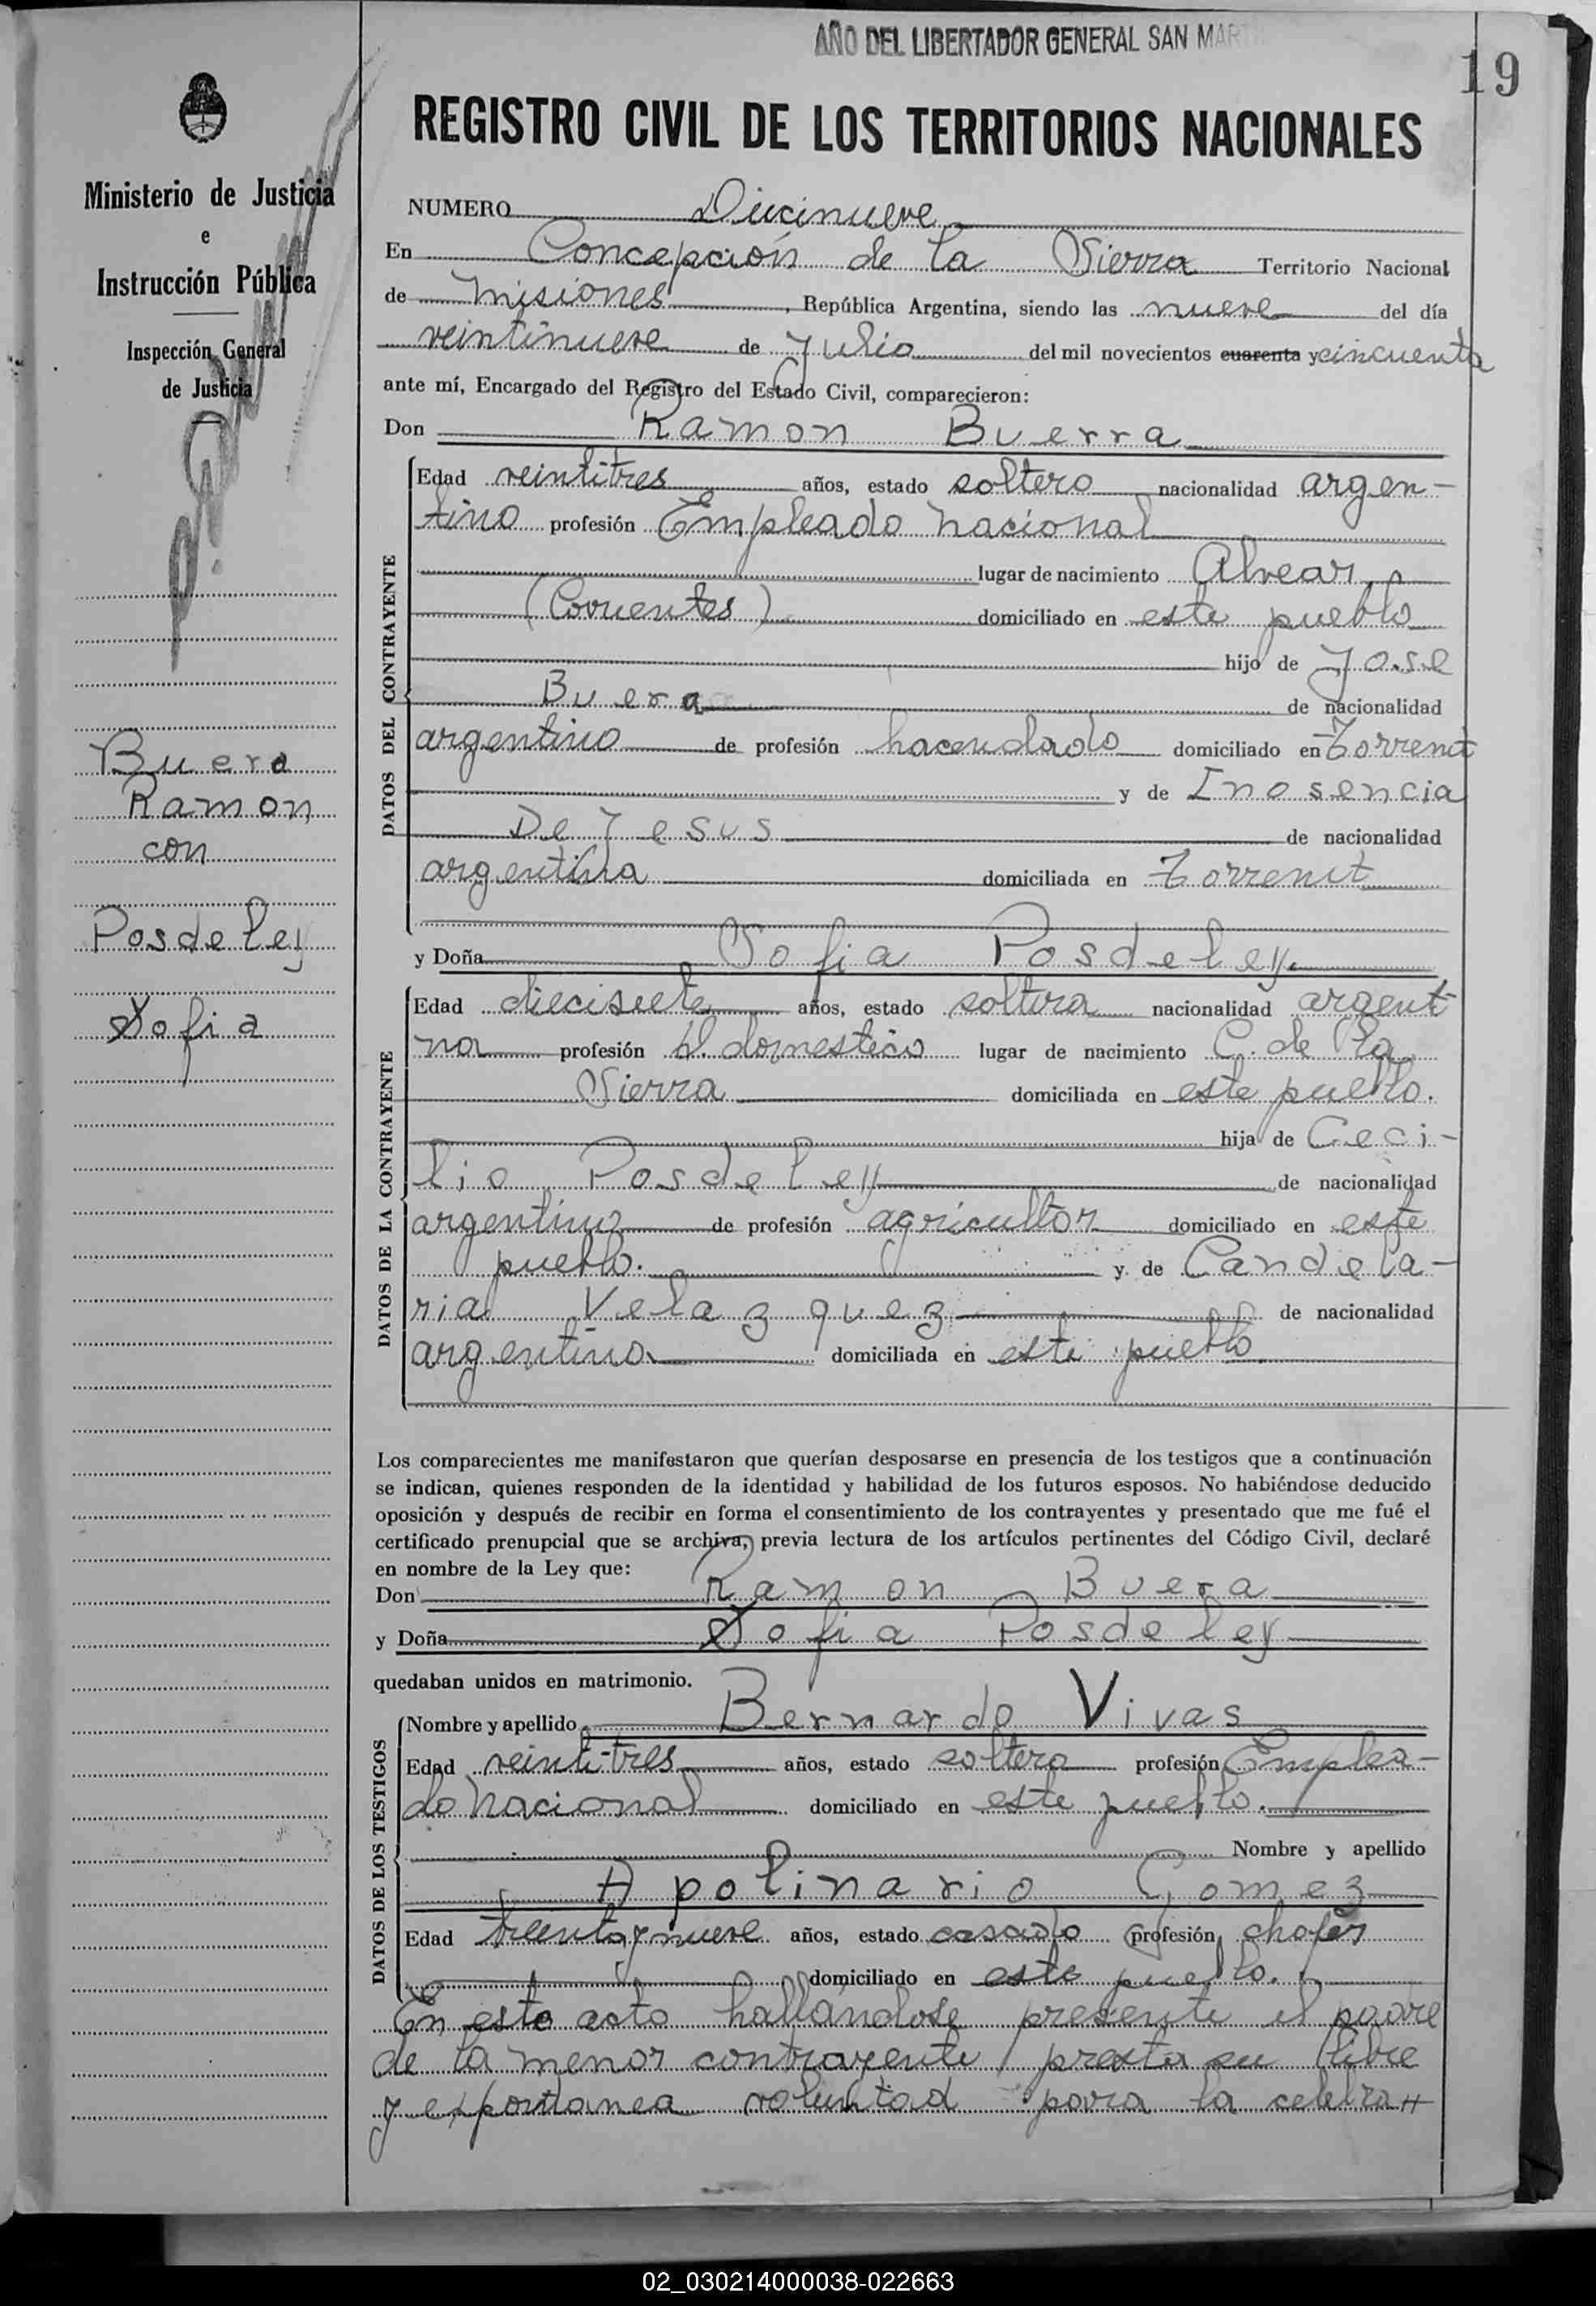 AÑO DEL LIBERTADOR GENERAL SAN MARTI
19
REGISTRO CIVIL DE LOS TERRITORIOS NACIONALES
Ministerio de Justicia
e
Instrucción Pública
Inspección General
de Justicia
Buera
Ramon
con
Posdeley
Sofia
NUMERO Diecinueve
En Concepción de la Sierra Territorio Nacional
de Misiones, República Argentina, siendo las nueve del día
veintinueve de Julio del mil novecientos cuarenta y cincuenta
ante mí, Encargado del Registro del Estado Civil, comparecieron:
Don Ramon Buerra
DATOS DEL CONTRAYENTE
Edad veintitres años, estado soltero nacionalidad argen-
tino profesión Empleado nacional
lugar de nacimiento Alvear
(Corrientes) domiciliado en este pueblo
hijo de Jose
Buera de nacionalidad
argentino de profesión hacendado domiciliado en Torrent
y de Inosencia
De Jesus de nacionalidad
argentina domiciliada en Torrent
y Doña Sofia Posdeley
DATOS DE LA CONTRAYENTE
Edad diecisiete años, estado soltera nacionalidad argenti
na profesión Q. domestico lugar de nacimiento C. de la
Sierra domiciliada en este pueblo.
hija de Ceci-
lio Posdeley de nacionalidad
argentino de profesión agricultor domiciliado en este
pueblo. y de Candela-
ria Velazquez de nacionalidad
argentina domiciliada en este pueblo
Los comparecientes me manifestaron que querían desposarse en presencia de los testigos que a continuación
se indican, quienes responden de la identidad y habilidad de los futuros esposos. No habiéndose deducido
oposición y después de recibir en forma el consentimiento de los contrayentes y presentado que me fué el
certificado prenupcial que se archiva, previa lectura de los artículos pertinentes del Código Civil, declaré
en nombre de la Ley que:
Don Ramon Buera
y Doña Sofia Posdeley
quedaban unidos en matrimonio.
DATOS DE LOS TESTIGOS
Nombre y apellido Bernardo Vivas
Edad veintitres años, estado soltero profesión Emplea-
do Nacional domiciliado en este pueblo.
Nombre y apellido
Apolinario Gomez
Edad treinta y nueve años, estado casado profesión chofer
domiciliado en este pueblo.
En este acto hallandose presente el padre
de la menor contrayente presta su libre
y expontanea voluntad para la celebra
02_030214000038-022663